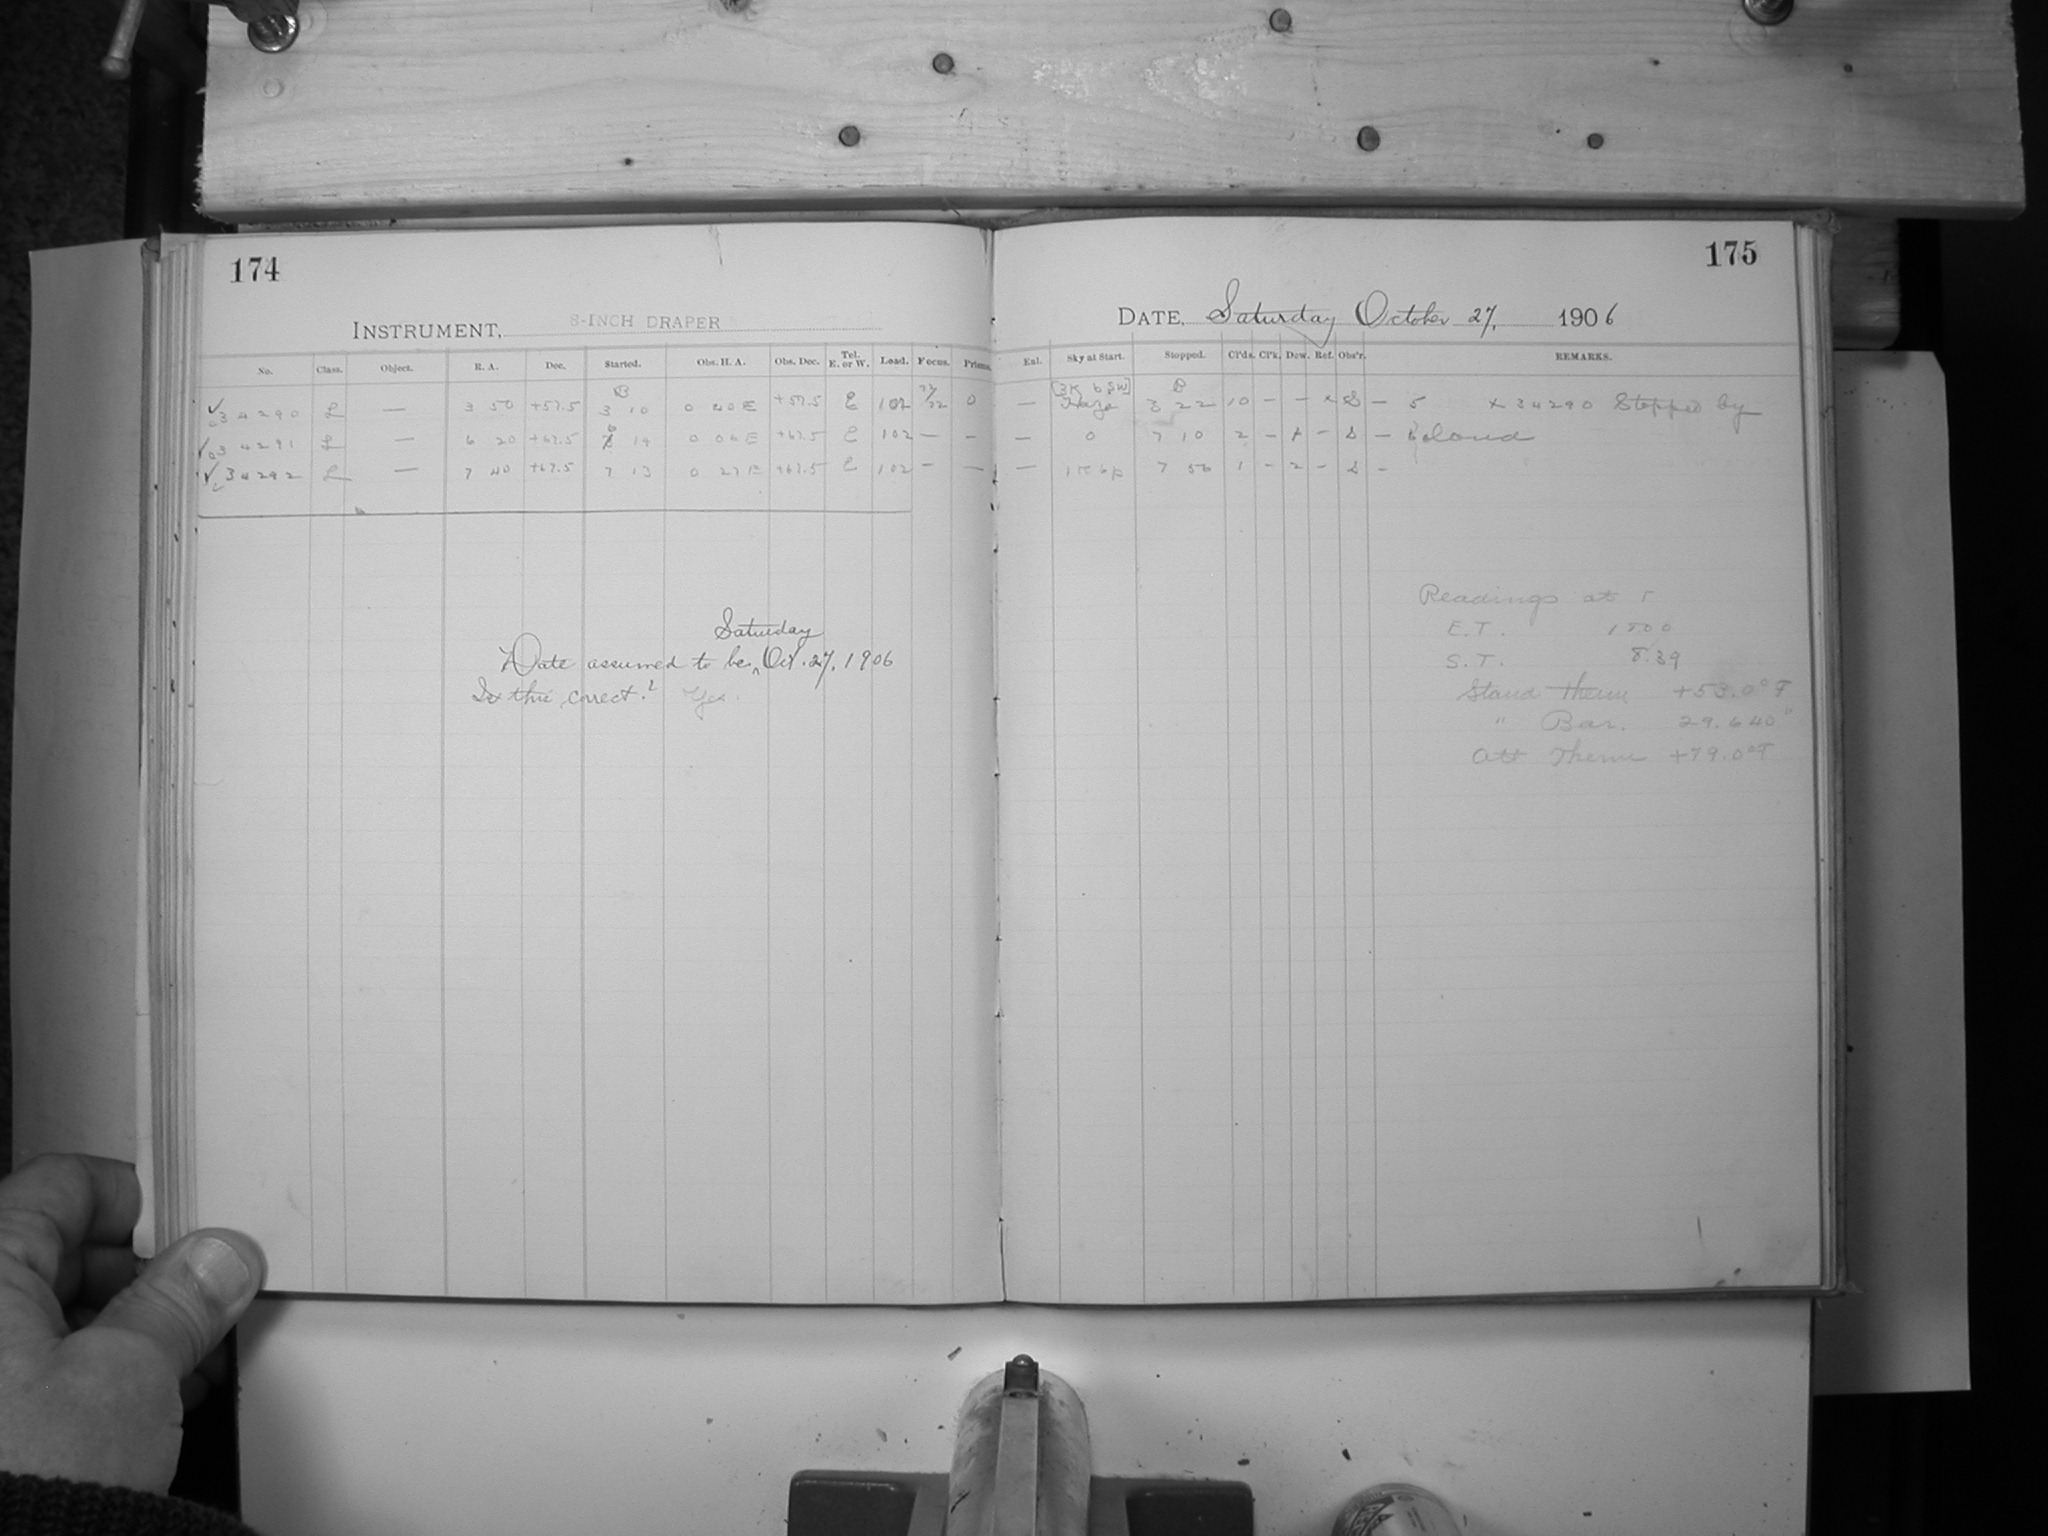 174
INSTRUMENT, 8-INCH DRAPER
No. Class. Object. R. A. Dec. Started. Obs. H. A. Obs. Dec. Tel. E. or W. Load. Focus. Prisms.
B
34290 L — 3 50 +57.5 3 10 0 40 E +57.5 E 102 0
34291 L — 6 20 +67.5 6 14 0 06 E +67.5 E 102 — —
34292 L — 7 40 +67.5 7 13 0 27 E +67.5 E 102 — —
Saturday
Date assumed to be ‸ Oct. 27, 1906
Is this correct? Yes.
175
DATE, Saturday October 27, 1906
Exl. Sky at Start. Stopped. Cl'ds. Cl'k. Dew. Ref. Obs'r. REMARKS.
B
— Haze 3 22 10 — — x S — 5 x 34290 Stopped by
— 0 7 10 2 — — S — cloud
— 7 56 1 — 2 — S —
Readings at
E.T.
S.T. 8.39
Stand Therm +53.0°F
" Bar. 29.640"
Att Therm +79.0°F